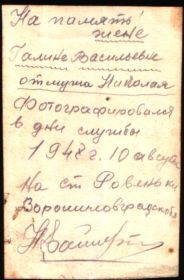 На память
жене
Галине Васильевне
от мужа Николая
Фотографировался
в дни службы
1948 г. 10 августа
На ст Ровеньки
Ворошиловградской